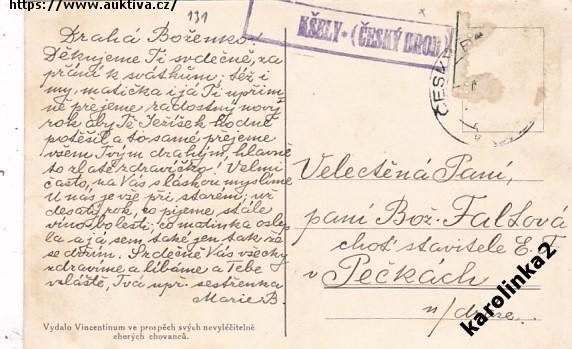 https://www.auktiva.cz/
131
KŠELY - (ČESKÝ BROD)
ČESKÝ
Drahá Boženko!
Děkujeme Ti srdečně, za
přání k svátkům; též i
my, matička i já Ti upřím-
ně přejeme radostný nový
rok. Aby Tě Ježíšek hodně
potěšil a to samé přejeme
všem Tvým drahým, hlavně
to zlaté zdravíčko! Velmi
často, na Vás s láskou myslíme
U nás je vše při starém; už
desátý rok, co pijeme stále
víno bolesti; co matinka oslep-
la a já sem také jen tak, že
se držím. Srdečně Vás všecky
zdravíme a líbáme a Tebe
zvláště, Tvá upř. sestřenka
Marie B.
Velectěná Paní,
paní Bož. Faltová
choť stavitele E. F.
v Pečkách
n/dráze.
Vydalo Vincentinum ve prospěch svých nevyléčitelně
chorých chovanců.
karolinka2